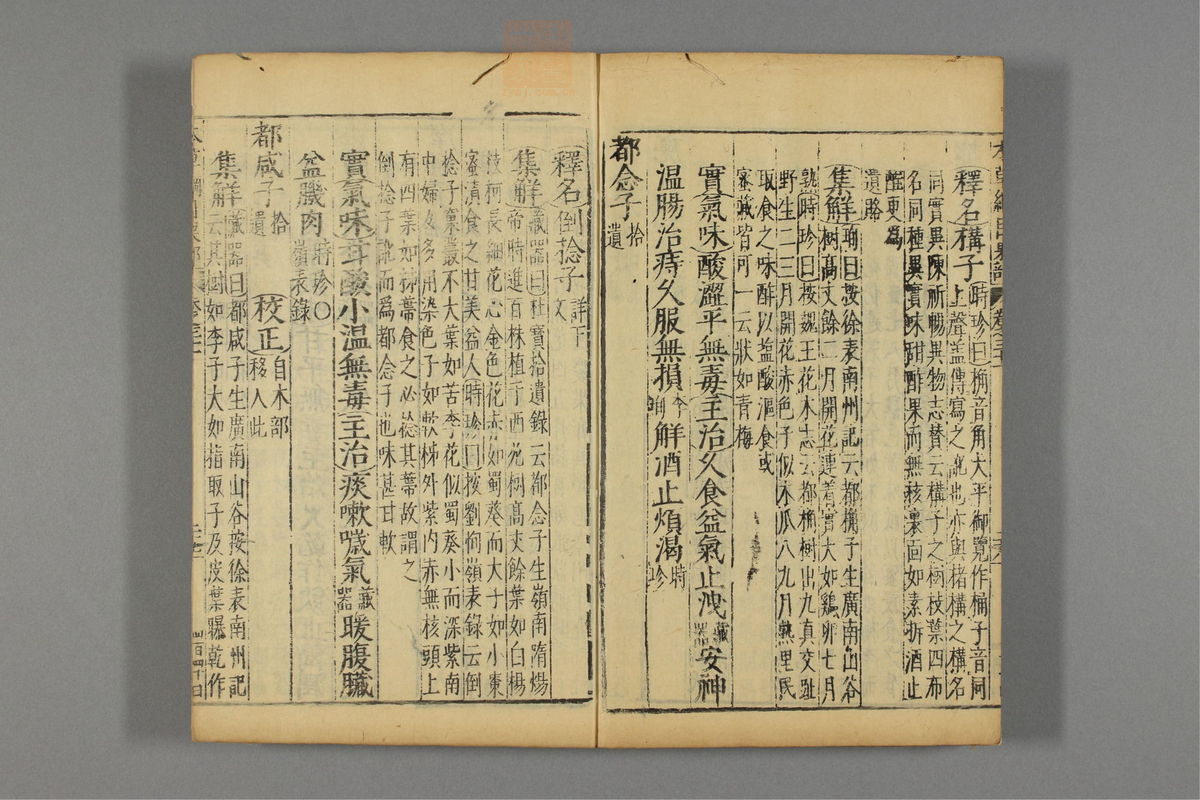 釋名構子時珍曰桷音角太平御覽作桶子音同
上聲蓋傳寫之訛也亦與楮構之構名
同實異陳祈暢異物志贊云構子之樹枝葉四布
名同種異實味甜酢果而無核裏面如素拆酒止
醒更爲
遺賂
集解珣曰按徐表南州記云都桷子生廣南山谷
樹高丈餘二月開花連着實大如鷄卵七月
熟時珍曰按魏王花木志云都桷樹出九真交趾
野生二三月開花赤色子似木瓜八九月熟里民
取食之味酢以鹽酸漚食或
蜜藏皆可一云狀如青梅
實氣味酸澀平無毒主治久食益氣止洩藏器安神
溫腸治痔久服無損解酒止煩渴時珍
都念子拾遺
釋名倒捻子詳下文
集解藏器曰杜寶拾遺錄云都念子生嶺南隋煬
帝時進百株植于西苑樹高丈餘葉如白楊
枝柯長細花心金色花赤如蜀葵而大子如小棗
蜜漬食之甘美益人時珍曰按劉恂嶺表錄云倒
捻子窠叢不大葉如苦李花似蜀葵小而深紫南
中婦女多用染色子如軟柹外紫內赤無核頭上
有四葉如柹蒂食之必捻其蒂故謂之
倒捻子訛而爲都念子也味甚甘軟
實氣味甘酸小溫無毒主治痰嗽噦氣藏器暖腹臟
益肌肉時珍○嶺表錄
都咸子拾遺校正自木部移入此
集解藏器曰都咸子生廣南山谷按徐表南州記
云其樹如李子大如指取子及皮葉曝乾作